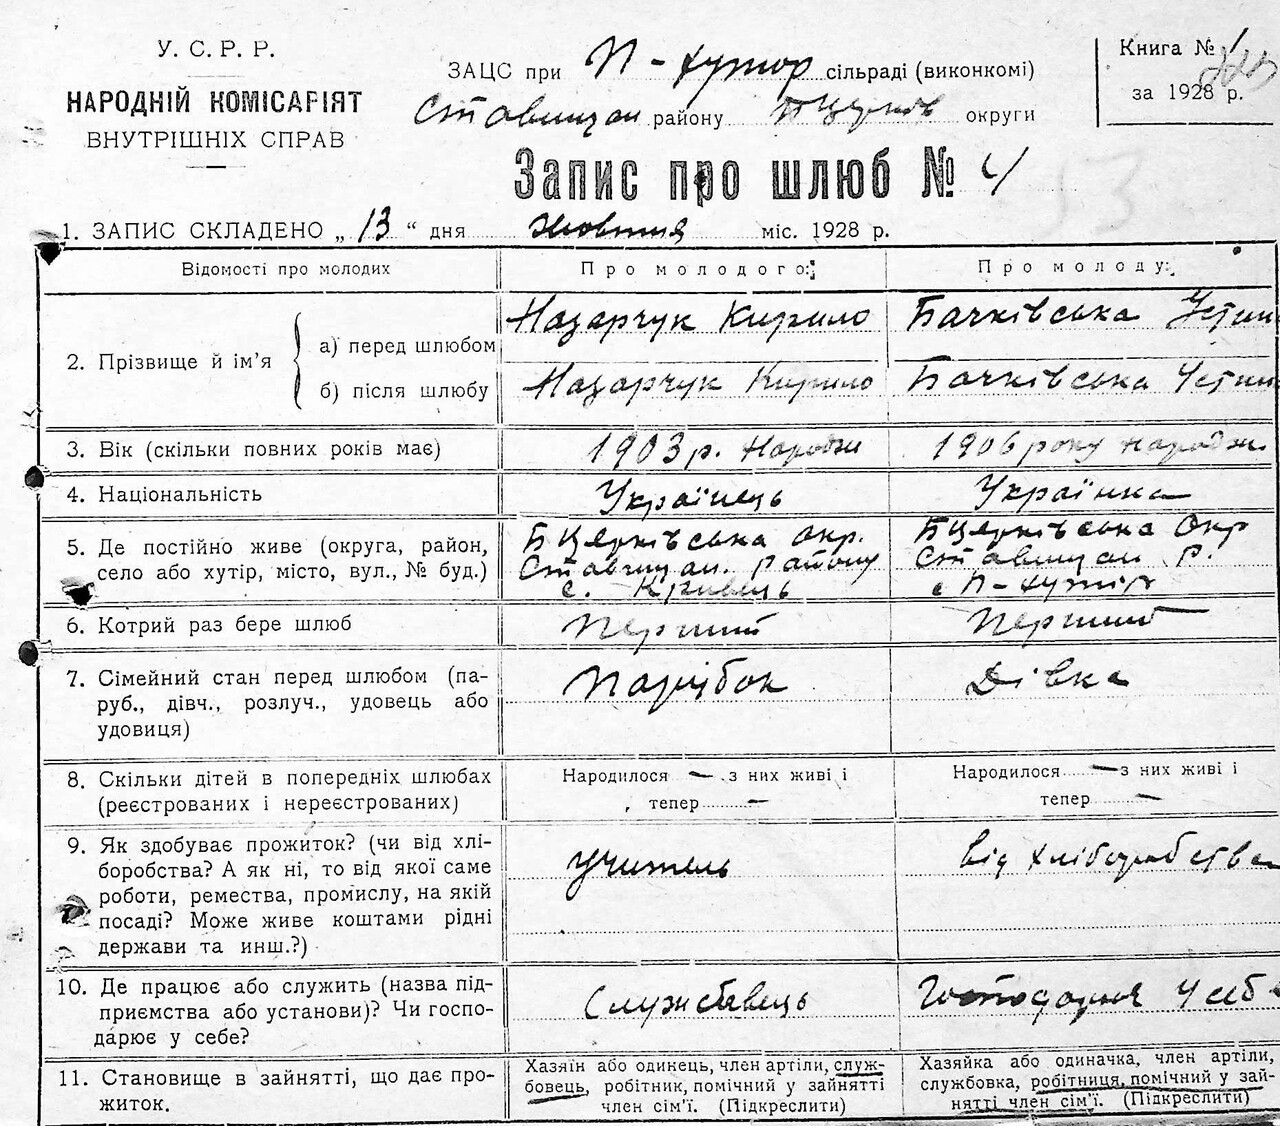 У. С. Р. Р.
НАРОДНІЙ КОМІСАРІЯТ
ВНУТРІШНІХ СПРАВ
ЗАЦС при П-хутор сільраді (виконкомі)
Ставищан району округи
Книга № 1
за 1928 р.
Запис про шлюб № 4
1. ЗАПИС СКЛАДЕНО „ 13 “ дня жовтня міс. 1928 р.
Відомості про молодих
Про молодого:
Про молоду:
2. Прізвище й ім’я
а) перед шлюбом
Назарчук Кирило
Бачківська Устин
б) після шлюбу
Назарчук Кирило
Бачківська Устин
3. Вік (скільки повних років має)
1903 р. народж
1906 року народж
4. Національність
Українець
Українка
5. Де постійно живе (округа, район,
село або хутір, місто, вул., № буд.)
БЦерківська окр.
Ставищан. району
с. Кривець
БЦерківська Окр
Ставищан. р.
с П-хутір
6. Котрий раз бере шлюб
Перший
Перший
7. Сімейний стан перед шлюбом (па-
руб., дівч., розлуч., удовець або
удовиця)
Парубок
Дівка
8. Скільки дітей в попередніх шлюбах
(реєстрованих і нереєстрованих)
Народилося — з них живі і
тепер —
Народилося — з них живі і
тепер —
9. Як здобуває прожиток? (чи від хлі-
боробства? А як ні, то від якої саме
роботи, ремества, промислу, на якій
посаді? Може живе коштами рідні
держави та инш.?)
учитель
від хліборобства
10. Де працює або служить (назва під-
приємства або установи)? Чи госпо-
дарює у себе?
Службовець
Господарює у себе
11. Становище в зайнятті, що дає про-
житок.
Хазяїн або одинець, член артіли, служ-
бовець, робітник, помічний у зайнятті
член сім’ї. (Підкреслити)
Хазяйка або одиначка, член артіли,
службовка, робітниця, помічний у зай-
нятті член сім’ї. (Підкреслити)